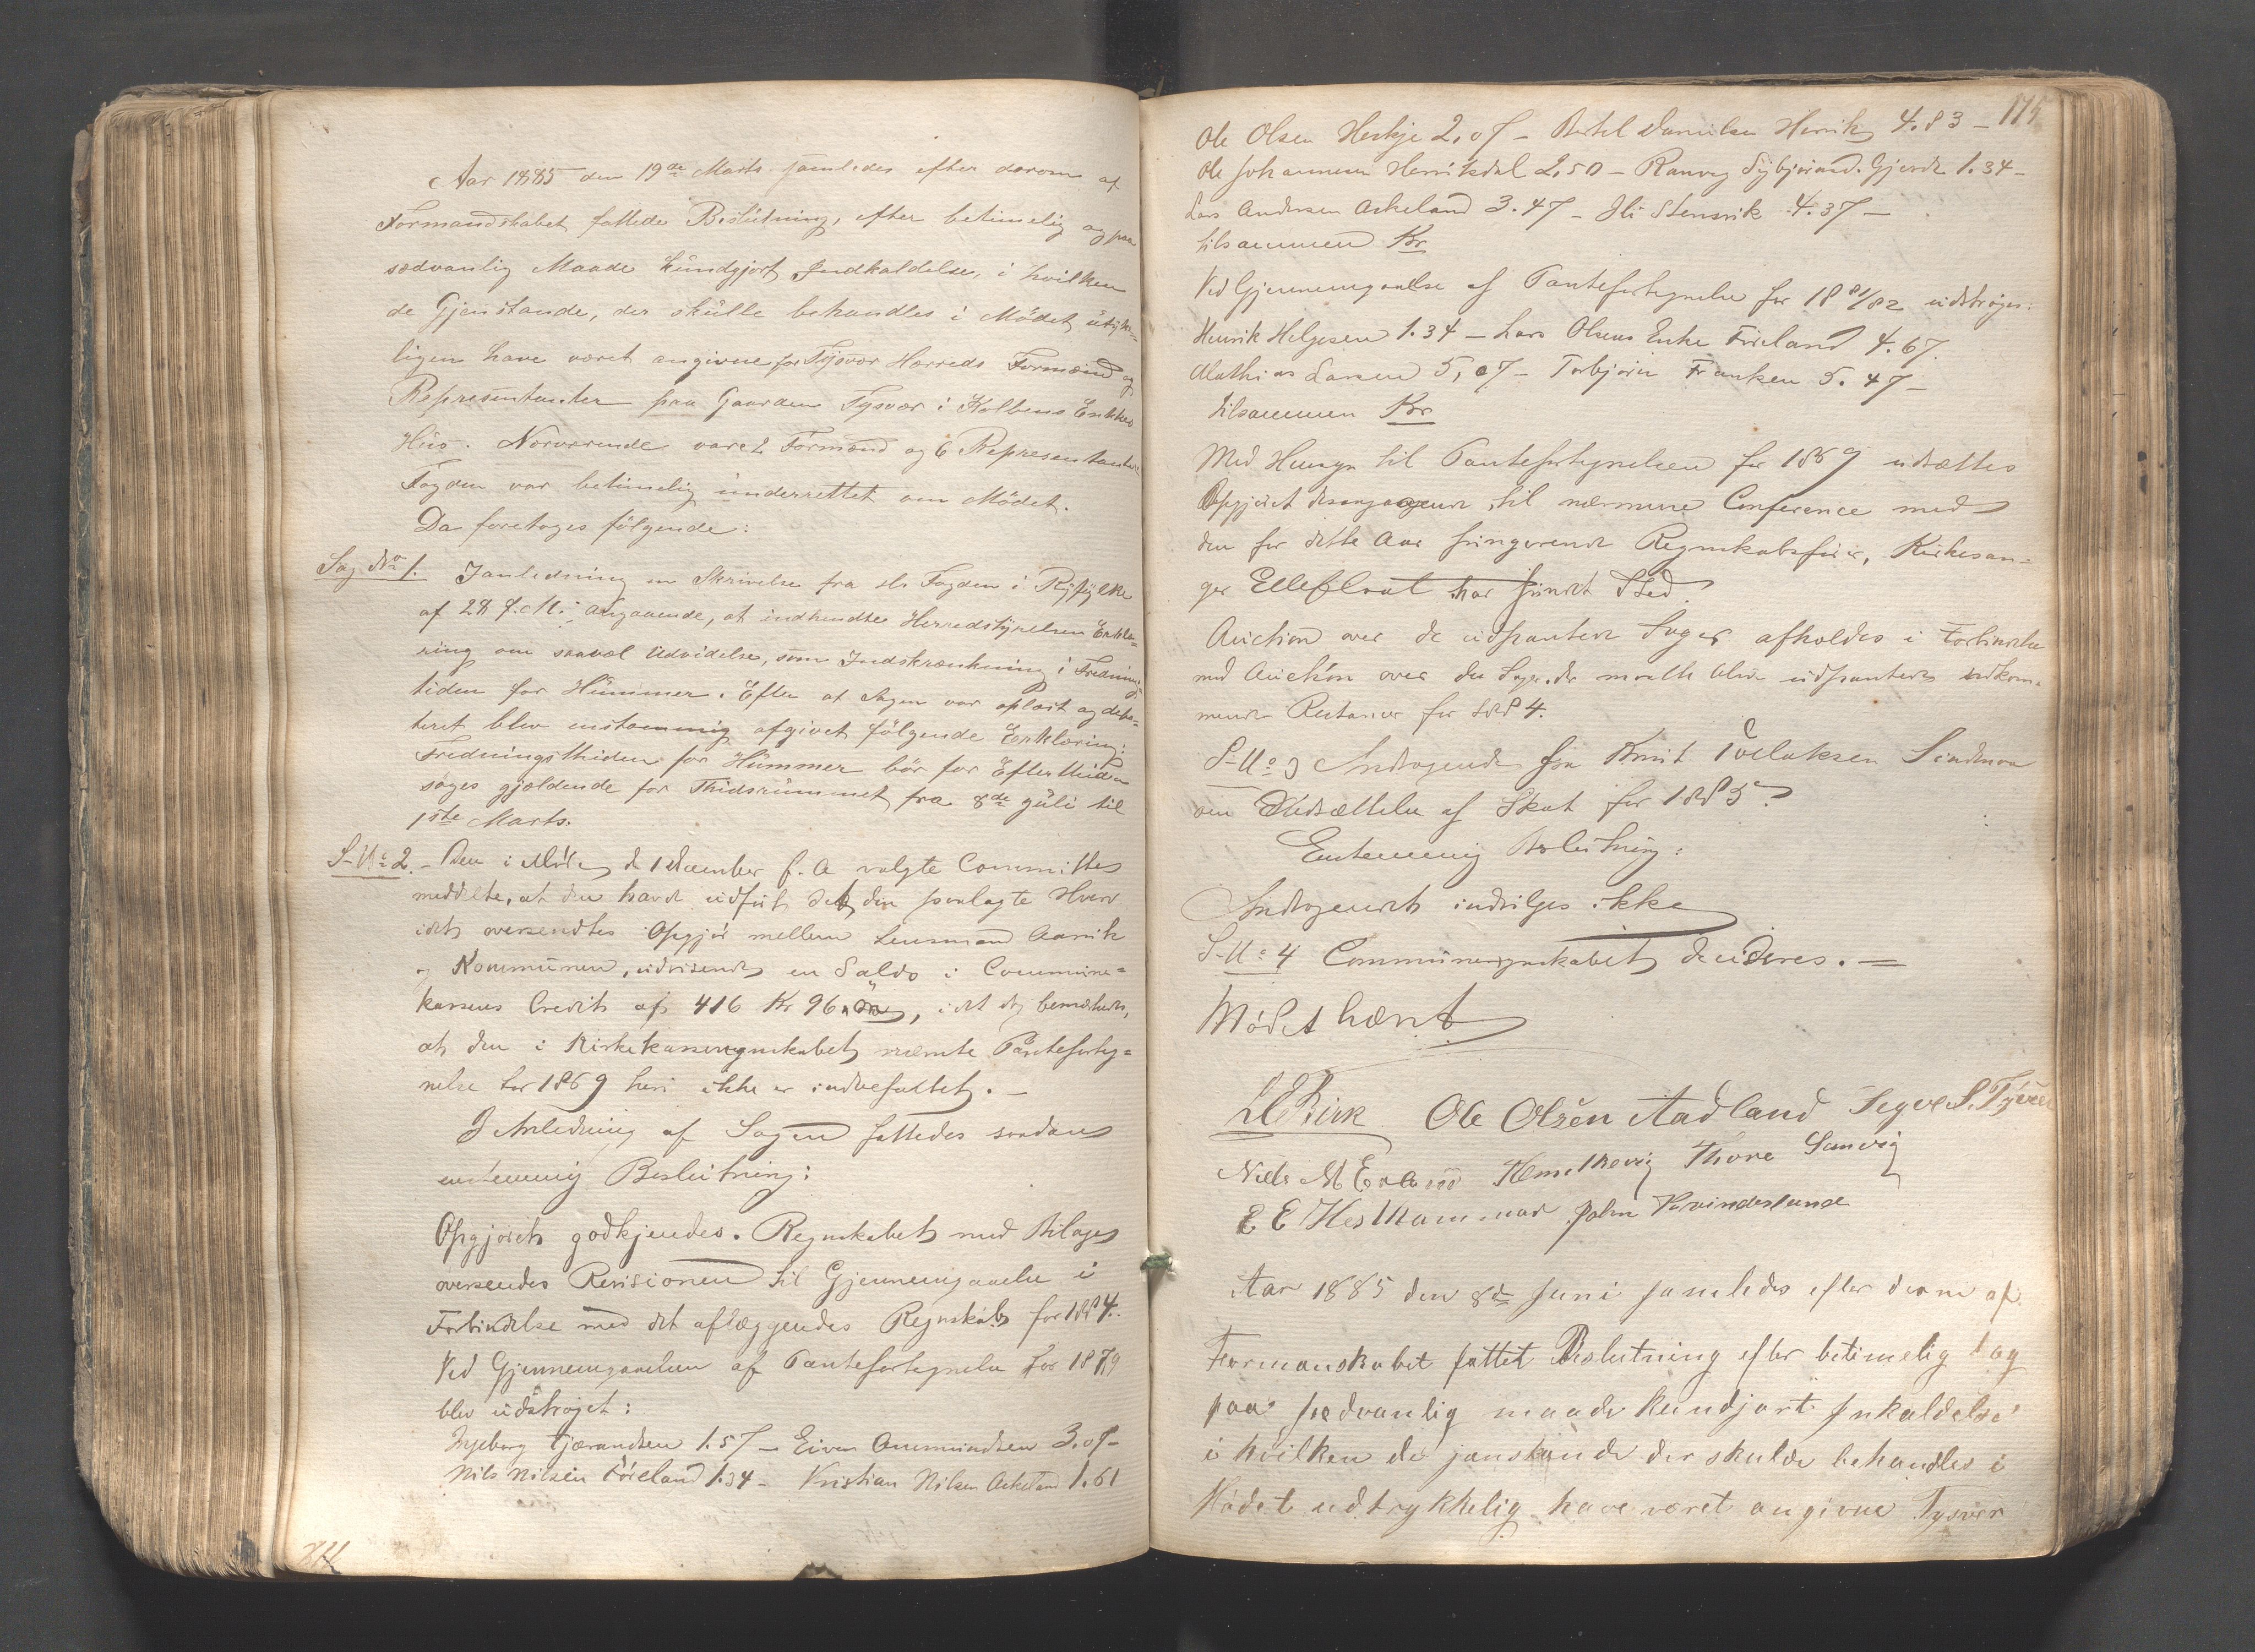 Aar 1885 den 19de Marts samledes efter derom af
Formandskabet fattede Beslutning, efter betimelig og paa
sædvanlig Maade kundgjort Indkaldelse, i hvilken
de Gjenstande, der skulle behandles i Mödet, udtryk-
ligen have været angivne, for Tysvær Herreds Formænd og
Repræsentanter paa Gaarden Tysvær i Kolbens Enkkes
Hus. Nærværende vare 2 Formænd og 6 Repræsentanter
Fogden var betimelig underrettet om Mödet.
Da foretoges fölgende:
Sag No 1. I anledning en Skrivelse fra Hr Fogden i Ryfylke
af 28 f. M. angaaende, at indhendte Herredstyrelsen Erklæ-
ring om saavel Udvidelse, som Indskrænkning i Frednings-
tiden for Hummer. Efter at Sagen var oplæst og debat-
teret blev enstemmig afgivet fölgende Erklæring:
Fredningsthiden for Hummer bör for Efterthiden
søges gjældende for Thidsrummet fra 8de Juli til
1ste Marts.
S-No 2. - Den i Möde d 1 December f. A valgte Committee
meddelte, at den havde udfört det den paalagte Hverv
idet oversendtes Opgjör mellem Lensmand Aarvik
og Kommunen, udvisende en Saldo i Commune-
kassens Credit af 416 Kr 96 Øre, idet dog bemærkedes,
at den i Kirkekasseregnskabet nævnte Panteforteg-
nelse for 1869 heri ikke er indbefattet. -
I Anledning af Sagen fattedes saadan
enstemmig Beslutning:
Opgjöret godkjendes. Regnskabet med Bilager
oversendes Revisionen til Gjennemgaaelse i
Forbindelse med det aflæggendes Regnskab for 1884.
Ved Gjennemgaaelsen af Pantefortegnelse for 1879
blev udströget:
Ingeborg Gjærandsen 1.57 - Eivin Ommundsen 3.07 -
Nils Nilsen Föreland 1.34 - Kristian Nilsen Askeland 1.61
175
Ole Olsen Heskje 2,07 - Bertel Danielsen Hervik 4.83 -
Ole Johannesen Herviksdal 2,50 - Ranveig Gjerde 1.34 -
Lars Andersen Askeland 3.47 - Stensvik 4.37 -
tilsammen Kr
Ved Gjennemgaaelse af Pantefortegnelse for 1881/82 udströges:
Henrik Helgesen 1.34 - Lars Olsens Enke Föreland 4.67.
Mathias Larsen 5,07 - Torbjörn Franken 5.47 -
tilsammen Kr
Med Hensyn til Pantefortegnelsen for 1869 udsættes
Opgjöret desangaaende til nærmere Conference med
den for dette Aar fungerende Regnskabsförer, Kirkesan-
ger Ellefsen har fundet Sted.
Auction over de udpantede Sager afholdes i Forbindelse
med Auction over de Sager, der maatte blive udpantede indkom-
mende Restancer for 1884.
S-No 3 Andragende fra Knut Torlaksen Sindnæs
om Nedsættelse af Skat for 1885.
Enstemmig Beslutning:
Andragendet indvilges ikke
S-No 4 Communeregnskabet decideres. -
Mödet hævet
L Birk Ole Olsen Aadland Segve S. Tysvær
Niels M Thore Samvig
E E Hesthammer John Kvindesland
Aar 1885 den 8de Juni samledes efter derom af
Formanskabet fattet Beslutning efter betimelig og
paa sædvanlig maade kundjort Inkaldelse
i hvilken de janstande der skulde behandles i
Mødet udtrykkelig have været angivne Tysvær